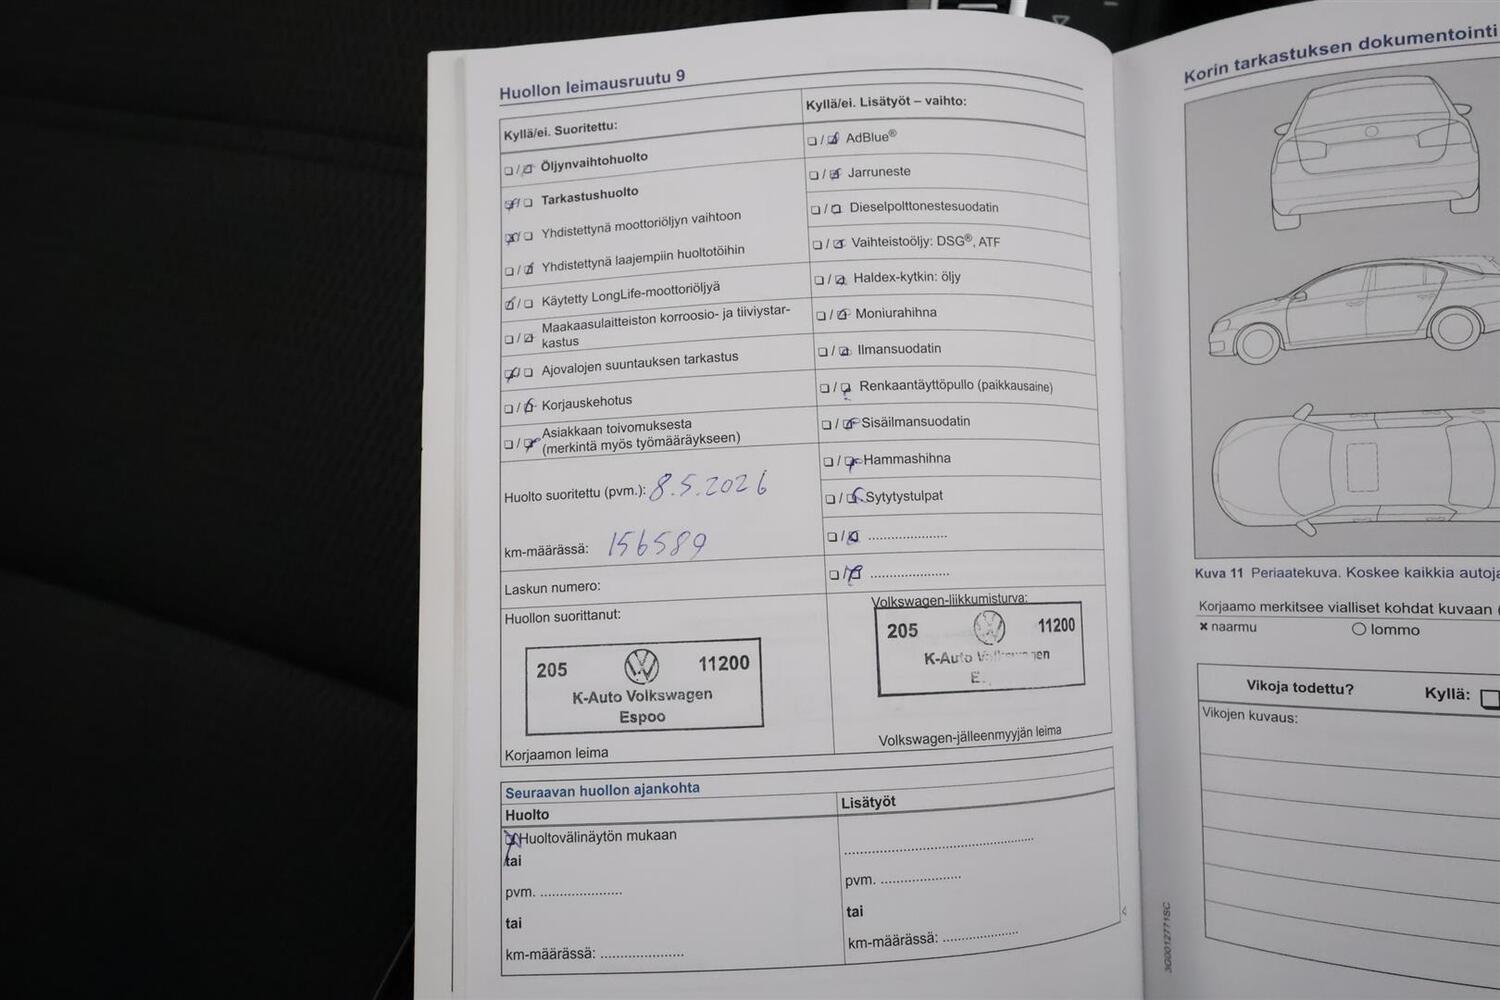 Huollon leimausruutu 9
Kyllä/ei. Suoritettu:
Öljynvaihtohuolto
Tarkastushuolto
Yhdistettynä moottoriöljyn vaihtoon
Yhdistettynä laajempiin huoltotöihin
Käytetty LongLife-moottoriöljyä
Maakaasulaitteiston korroosio- ja tiiviystar-
kastus
Ajovalojen suuntauksen tarkastus
Korjauskehotus
Asiakkaan toivomuksesta
(merkintä myös työmääräykseen)
Huolto suoritettu (pvm.): 8.5.2026
km-määrässä: 156589
Laskun numero:
Huollon suorittanut:
205 11200
K-Auto Volkswagen
Espoo
Korjaamon leima
Kyllä/ei. Lisätyöt – vaihto:
AdBlue®
Jarruneste
Dieselpolttonestesuodatin
Vaihteistoöljy: DSG®, ATF
Haldex-kytkin: öljy
Moniurahihna
Ilmansuodatin
Renkaantäyttöpullo (paikkausaine)
Sisäilmansuodatin
Hammashihna
Sytytystulpat
Volkswagen-liikkumisturva:
205 11200
K-Auto
Volkswagen-jälleenmyyjän leima
Seuraavan huollon ajankohta
Huolto
Huoltovälinäytön mukaan
tai
pvm. ....................
tai
km-määrässä: ....................
Lisätyöt
pvm. ....................
tai
km-määrässä: ....................
Korin tarkastuksen dokumentointi
Kuva 11 Periaatekuva. Koskee kaikkia
Korjaamo merkitsee vialliset kohdat kuvaan
× naarmu
lommo
Vikoja todettu? Kyllä:
Vikojen kuvaus:
3G0012771SC